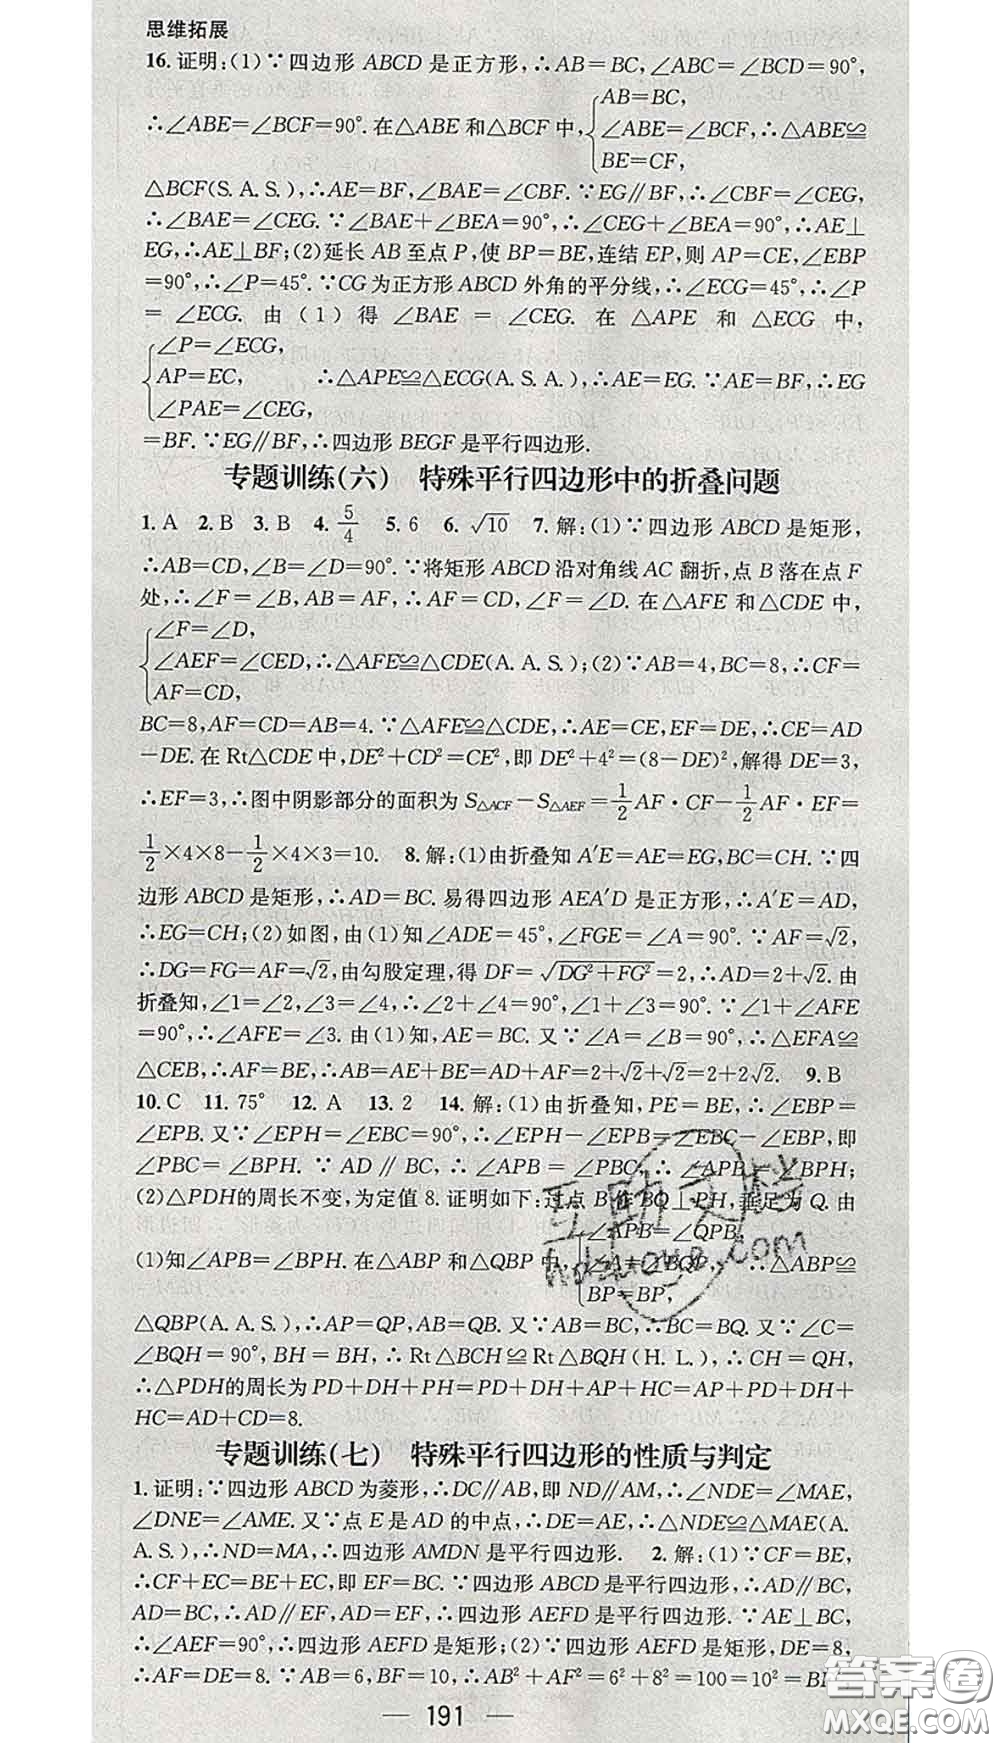 思维拓展
16. 证明:(1)∵四边形 ABCD 是正方形,∴AB=BC,∠ABC=∠BCD=90°,
AB=BC,
∴∠ABE=∠BCF=90°. 在△ABE 和△BCF 中, ∠ABE=∠BCF, ∴△ABE≌
BE=CF,
△BCF(S. A. S.),∴AE=BF,∠BAE=∠CBF. ∵EG∥BF,∴∠CBF=∠CEG,
∴∠BAE=∠CEG. ∵∠BAE+∠BEA=90°,∴∠CEG+∠BEA=90°,∴AE⊥
EG,∴AE⊥BF;(2)延长 AB 至点 P,使 BP=BE,连结 EP,则 AP=CE,∠EBP
=90°,∴∠P=45°. ∵CG 为正方形 ABCD 外角的平分线,∴∠ECG=45°,∴∠P
=∠ECG. 由(1)得∠BAE=∠CEG. 在△APE 和△ECG 中,
∠P=∠ECG,
AP=EC, ∴△APE≌△ECG(A. S. A.),∴AE=EG. ∵AE=BF,∴EG
∠PAE=∠CEG,
=BF. ∵EG∥BF,∴四边形 BEGF 是平行四边形.
专题训练(六) 特殊平行四边形中的折叠问题
1. A 2. B 3. B 4. 5/4 5. 6 6. √10 7. 解:(1)∵四边形 ABCD 是矩形,
∴AB=CD,∠B=∠D=90°. ∵将矩形 ABCD 沿对角线 AC 翻折,点 B 落在点 F
处,∴∠F=∠B,AB=AF,∴AF=CD,∠F=∠D. 在△AFE 和△CDE 中,
∠F=∠D,
∠AEF=∠CED, ∴△AFE≌△CDE(A. A. S.);(2)∵AB=4,BC=8,∴CF=
AF=CD,
BC=8,AF=CD=AB=4. ∵△AFE≌△CDE,∴AE=CE,EF=DE,∴CE=AD
-DE. 在 Rt△CDE 中,DE²+CD²=CE²,即 DE²+4²=(8-DE)²,解得 DE=3,
∴EF=3,∴图中阴影部分的面积为 S△ACF-S△AEF=1/2AF·CF-1/2AF·EF=
1/2×4×8-1/2×4×3=10. 8. 解:(1)由折叠知 A′E=AE=EG,BC=CH. ∵四
边形 ABCD 是矩形,∴AD=BC. 易得四边形 AEA′D 是正方形,∴A′E=AD,
∴EG=CH;(2)如图,由(1)知∠ADE=45°,∠FGE=∠A=90°. ∵AF=√2,
∴DG=FG=AF=√2,由勾股定理,得 DF=√DG²+FG²=2,∴AD=2+√2. 由
折叠知,∠1=∠2,∠3=∠4,∴∠2+∠4=90°,∠1+∠3=90°. ∵∠1+∠AFE
=90°,∴∠AFE=∠3. 由(1)知,AE=BC. 又∵∠A=∠B=90°,∴△EFA≌
△CEB,∴AF=BE,∴AB=AE+BE=AD+AF=2+√2+√2=2+2√2. 9. B
10. C 11. 75° 12. A 13. 2 14. 解:(1)由折叠知,PE=BE,∴∠EBP=
∠EPB. 又∵∠EPH=∠EBC=90°,∴∠EPH-∠EPB=∠EBC-∠EBP,即
∠PBC=∠BPH. ∵AD∥BC,∴∠APB=∠PBC,∴∠APB=∠BPH;
(2)△PDH的周长不变,为定值 8. 证明如下:过点 B 作 BQ⊥PH,垂足为 Q. 由
∠APB=∠QPB,
(1)知∠APB=∠BPH. 在△ABP 和△QBP 中, ∠A=∠BQP, ∴△ABP≌
BP=BP,
△QBP(A. A. S.),∴AP=QP,AB=QB. 又∵AB=BC,∴BC=BQ. 又∵∠C=
∠BQH=90°,BH=BH,∴Rt△BCH≌Rt△BQH(H. L.),∴CH=QH,
∴△PDH的周长为 PD+DH+PH=PD+DH+AP+HC=AP+PD+DH+
HC=AD+CD=8.
专题训练(七) 特殊平行四边形的性质与判定
1. 证明:∵四边形 ABCD 为菱形,∴DC∥AB,即 ND∥AM,∴∠NDE=∠MAE,
∠DNE=∠AME. 又∵点 E 是 AD 的中点,∴DE=AE,∴△NDE≌△MAE(A.
A. S.),∴ND=MA,∴四边形 AMDN 是平行四边形. 2. 解:(1)∵CF=BE,
∴CF+EC=BE+EC,即 EF=BC. ∵四边形 ABCD 是平行四边形,∴AD∥BC,
AD=BC,∴AD∥EF,AD=EF,∴四边形 AEFD 是平行四边形. ∵AE⊥BC,
∴∠AEF=90°,∴四边形 AEFD 是矩形;(2)∵四边形 AEFD 是矩形,DE=8,
∴AF=DE=8. ∵AB=6,BF=10,∴AB²+AF²=6²+8²=100=10²=
— 191 —
互助文档
hdzuoye.com
答案圈
MXQE.COM